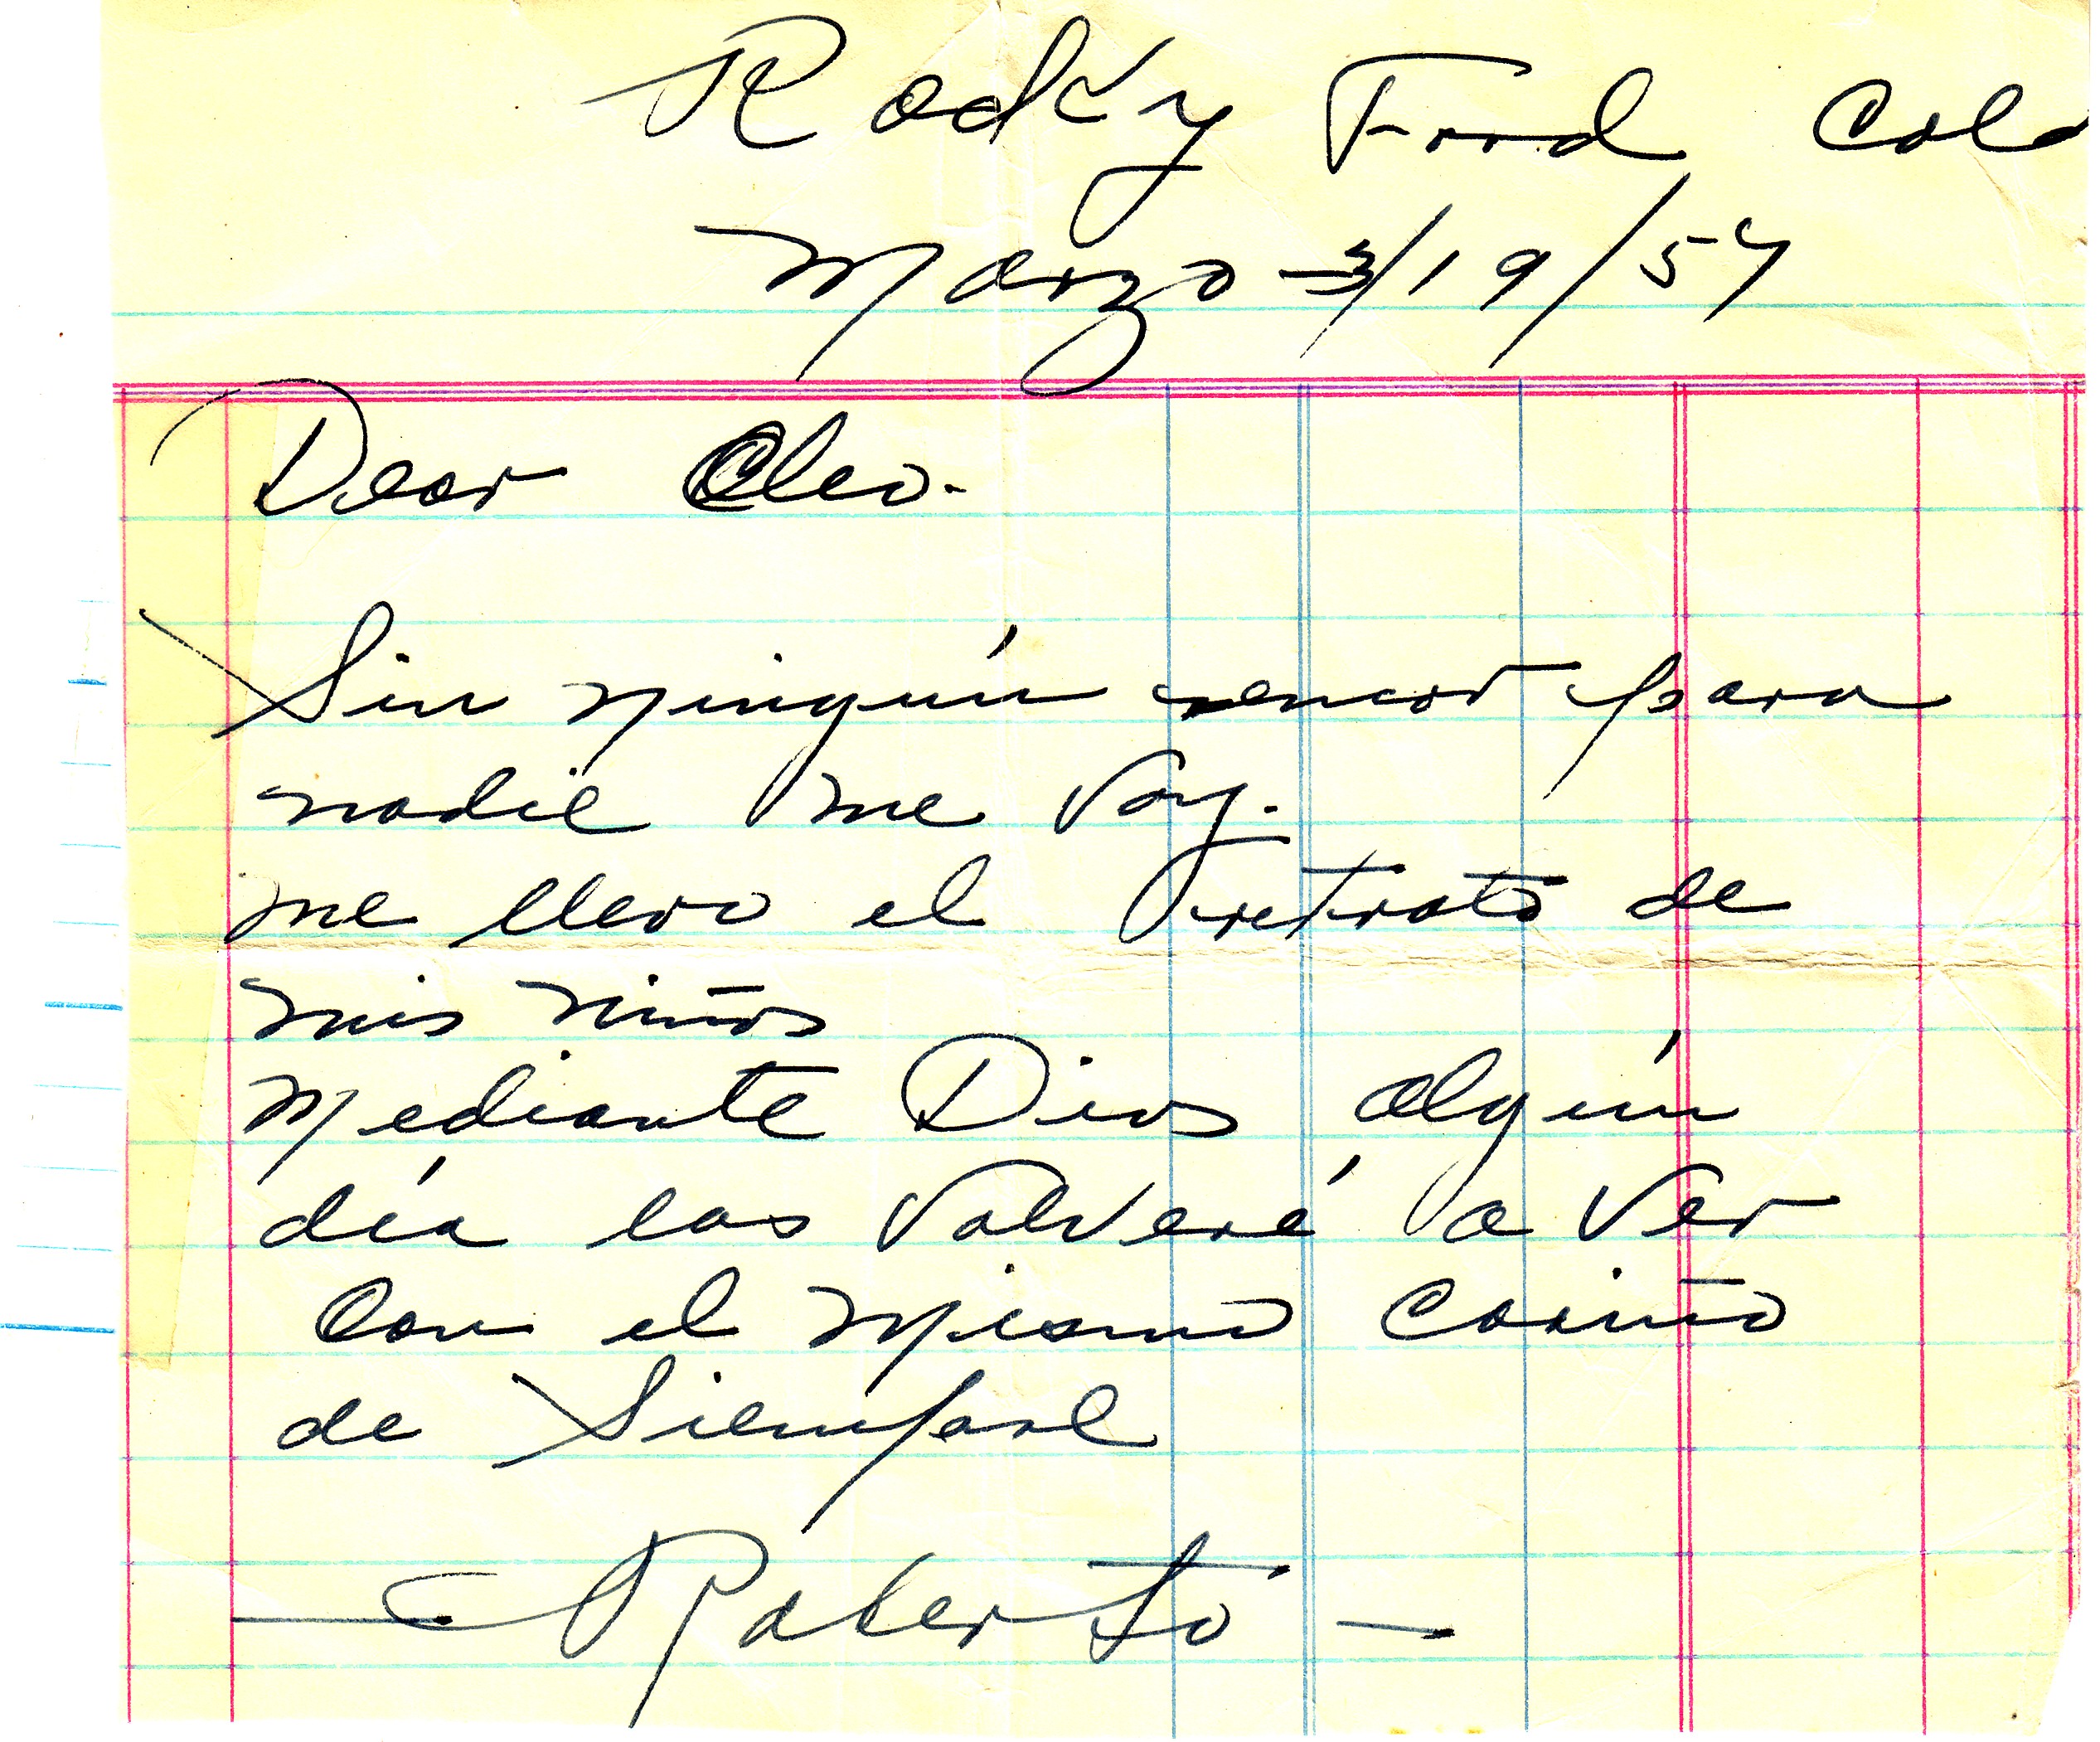 Rocky Ford Colo
Marzo - 3/19/57
Dear Cleo.
Sin ningún rencor para
nadie me voy.
me llevo el retrato de
mis niños
Mediante Dios algún
día los volveré a ver
Con el mismo Cariño
de Siempre
— Roberto —